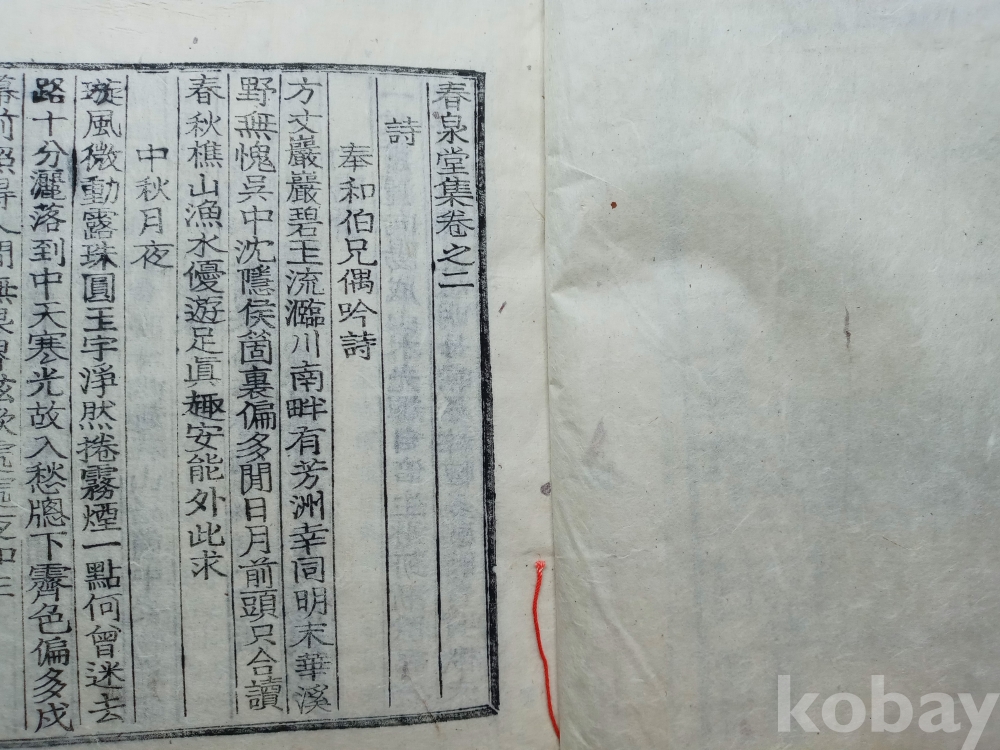 春泉堂集卷之二
詩
奉和伯兄偶吟詩
方丈巖巖碧玉流灆川南畔有芳洲幸同明末華溪
野無愧吳中沈隱侯箇裏偏多閒日月前頭只合讀
春秋樵山漁水優遊足眞趣安能外此求
中秋月夜
璇風微動露珠圓玉宇淨然捲霧煙一點何曾迷去
路十分灑落到中天寒光故入愁牎下霽色偏多戍
幕前照得人間無
kobay